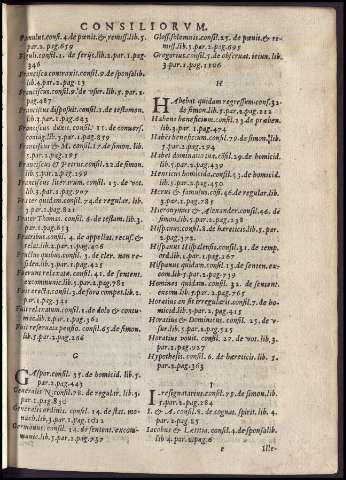 CONSILIORVM.
Famulus.consil. 4.de pœnit. & remiss. lib.5.
par.2.pag.659
consil.2. de ferijs.lib.2.par.1.pag.
346
Franciscus contraxit.consil.9.de sponsalib.
lib.4.par.2.pag.13
Franciscus.consil.9.de vsur.lib.5.par.2.
pag.487
Franciscus disposuit.consil.2.de testamen.
lib.3.par.1.pag.643
Franciscus duxit. consil. 11. de conuers.
coniug.lib.3.par.1.pag.859
Franciscus & M. consil.17.de simon. lib.
5.par.2.pag.195
Franciscus & Petrus.consil.22.de simon.
lib.5.par.2.pag.199
Franciscus literarum. consil. 23. de vot.
lib.3.par.1.pag.907
Frater quidam.consil.74.de regular. lib.
3.par.1.pag.821
Frater Thomas. consil. 6 de testam. lib.3.
par.1.pag.653
Fratribus.consil. 4. de appellat. recus. &
relat.lib.2.par.1.pag.406
consil.2. de cler. non re-
siden.lib.3.par.1.pag.421
Fuerunt relaxatæ.consil.41. de sentent.
excommunic.lib.5.par.2.pag.781
Fuit erecta.consil.3.de foro compet.lib.2.
par.1.pag.321
Fuit relaxatum. consil.1.de dolo & contu-
mac.lib.2.par.1.pag.361
Fuit reseruata pensio.consil.65.de simon.
lib.5.par.2.pag.266
G
GAspar.consil. 35.de homicid. lib.5.
par.2.pag.443
Generalis N.consil.78.de regular.lib.3.
par.1.pag.830
Generalis ordinis. consil. 14.de stat. mo-
nach.lib.3.par.1.pag.1012
Germanus.consil. 14.de sentent. excom-
munic.lib.5.par.2.pag.757
Gloss.solemnis.consil.25. de pœnit.& re-
miss.lib.5.par.2.pag.695
Gregorius.consil.5.de obseruat.ieiun.lib.
3.par.1.pag.1106
H
HAbebat quidam regressum.cons.32.
de simon.lib.5.par.2.pag.212
Habens beneficium.consil.23.de præben.
lib.3.par.1.pag.474
Habens beneficium.consil.79.de simon.lib.
5.par.2.pag.294
Habet dominantium.consil.29.de homicid.
lib.5.par.2.pag.439
Henricus homicida.consil.30.de homicid.
lib.5.par.2.pag.450
Herus & famulus.consil.46.de regular.lib.
3.par.1.pag.785
Hieronymus & Alexander.consil.46. de
simon.lib.5.par.2.pag.238
Hispanus.consil.8.de hæreticis.lib.5.par.
2.pag.372
Hispanus Hispalensis.consil.31. de temp.
ord.lib.1.par.1.pag.267
Hispanus quidam.consil.13.de senten.ex-
com.lib.5.par.2.pag.739
Homines quidam. consil. 31. de sentent.
excom.lib.5.par.2.pag.765
Horatius an sit irregularis.consil.7.de ho-
micid.lib.5.par.2.pag.415
Horatius & Dominicus. consil. 25. de v-
sur.lib.5.par.2.pag.515
Horatius vouit. consil. 27. de vot.lib.3.
par.1.pag.927
Hypothesis. consil.6. de hæreticis. lib.5.
par.2.pag.363
I
I. resignatarius.consil.75.de simon.lib.
5.par.2.pag.284
I. & A. consil.2.de cognat. spirit.lib.4.
par.2.pag.25
Iacobus & Lætitia.consil.4.de sponsalib.
lib 4.par.2.pag.6
e